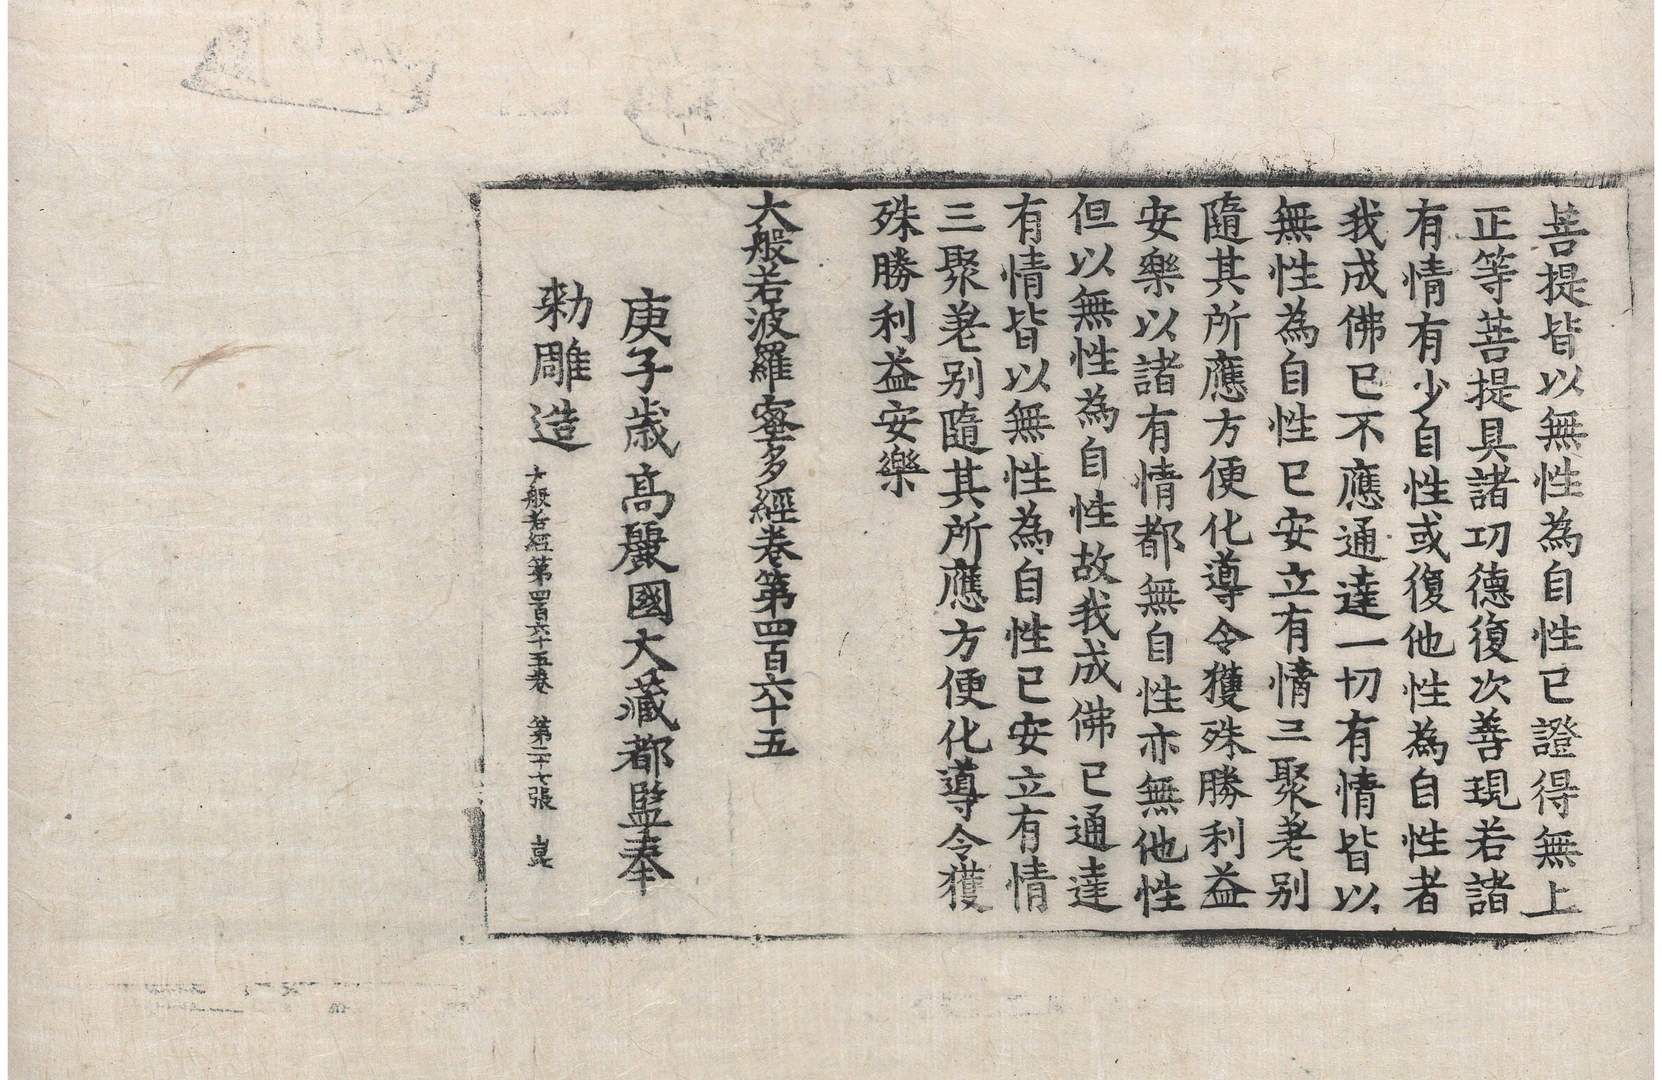 菩提皆以無性為自性已證得無上
正等菩提具諸功德復次善現若諸
有情有少自性或復他性為自性者
我成佛已不應通達一切有情皆以
無性為自性已安立有情三聚差别
隨其所應方便化導令獲殊勝利益
安樂以諸有情都無自性亦無他性
但以無性為自性故我成佛已通達
有情皆以無性為自性已安立有情
三聚差别隨其所應方便化導令獲
殊勝利益安樂
大般若波羅蜜多經卷第四百六十五
庚子歲高麗國大藏都監奉
勅雕造
大般若經第四百六十五卷 第二十七張